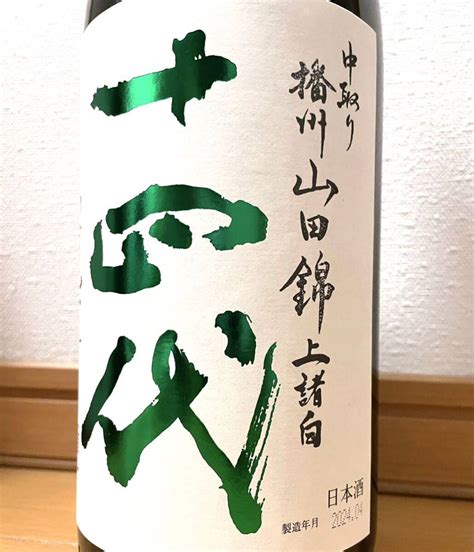 中取り
播州山田錦上諸白
十四代
日本酒
製造年月 2024.04